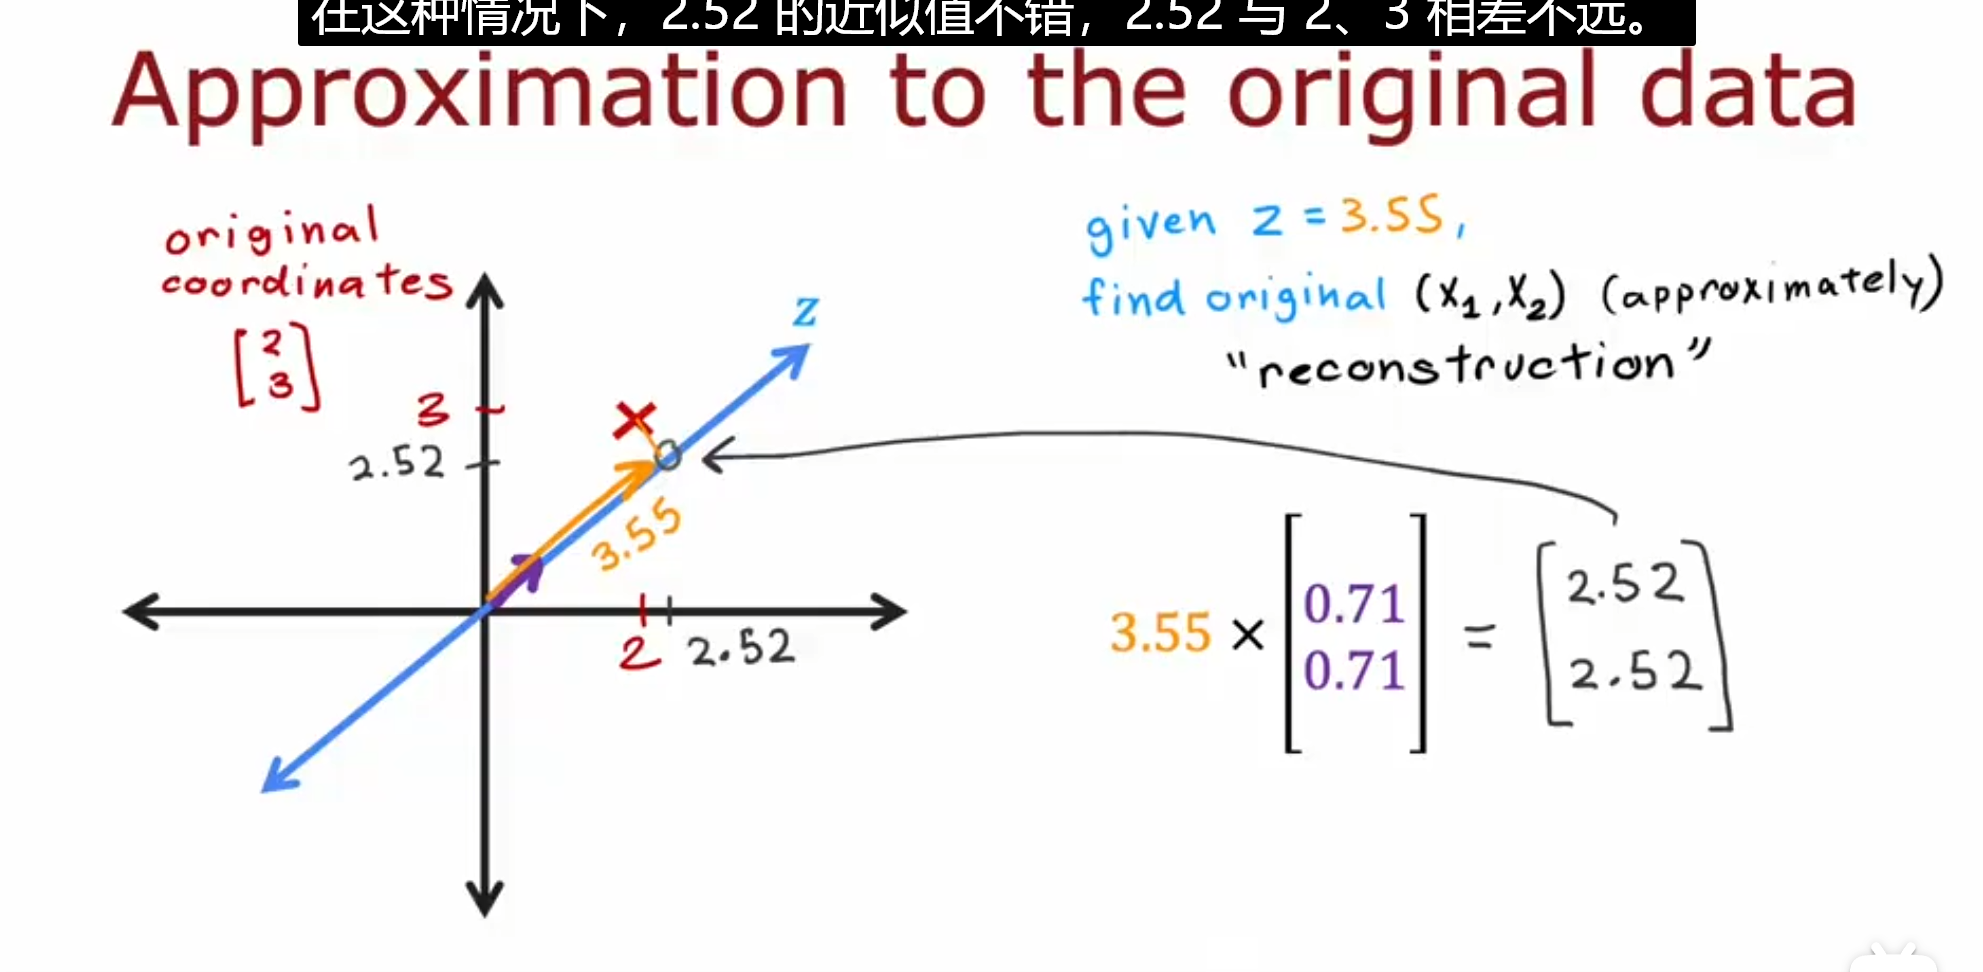 在这种情况下，2.52 的近似值不错，2.52 与 2、3 相差不远。
Approximation to the original data
original
coordinates
[2
3]
3
2.52
z
3.55
2
2.52
given z = 3.55,
find original (x₁,x₂) (approximately)
"reconstruction"
3.55 × [0.71
0.71] = [2.52
2.52]